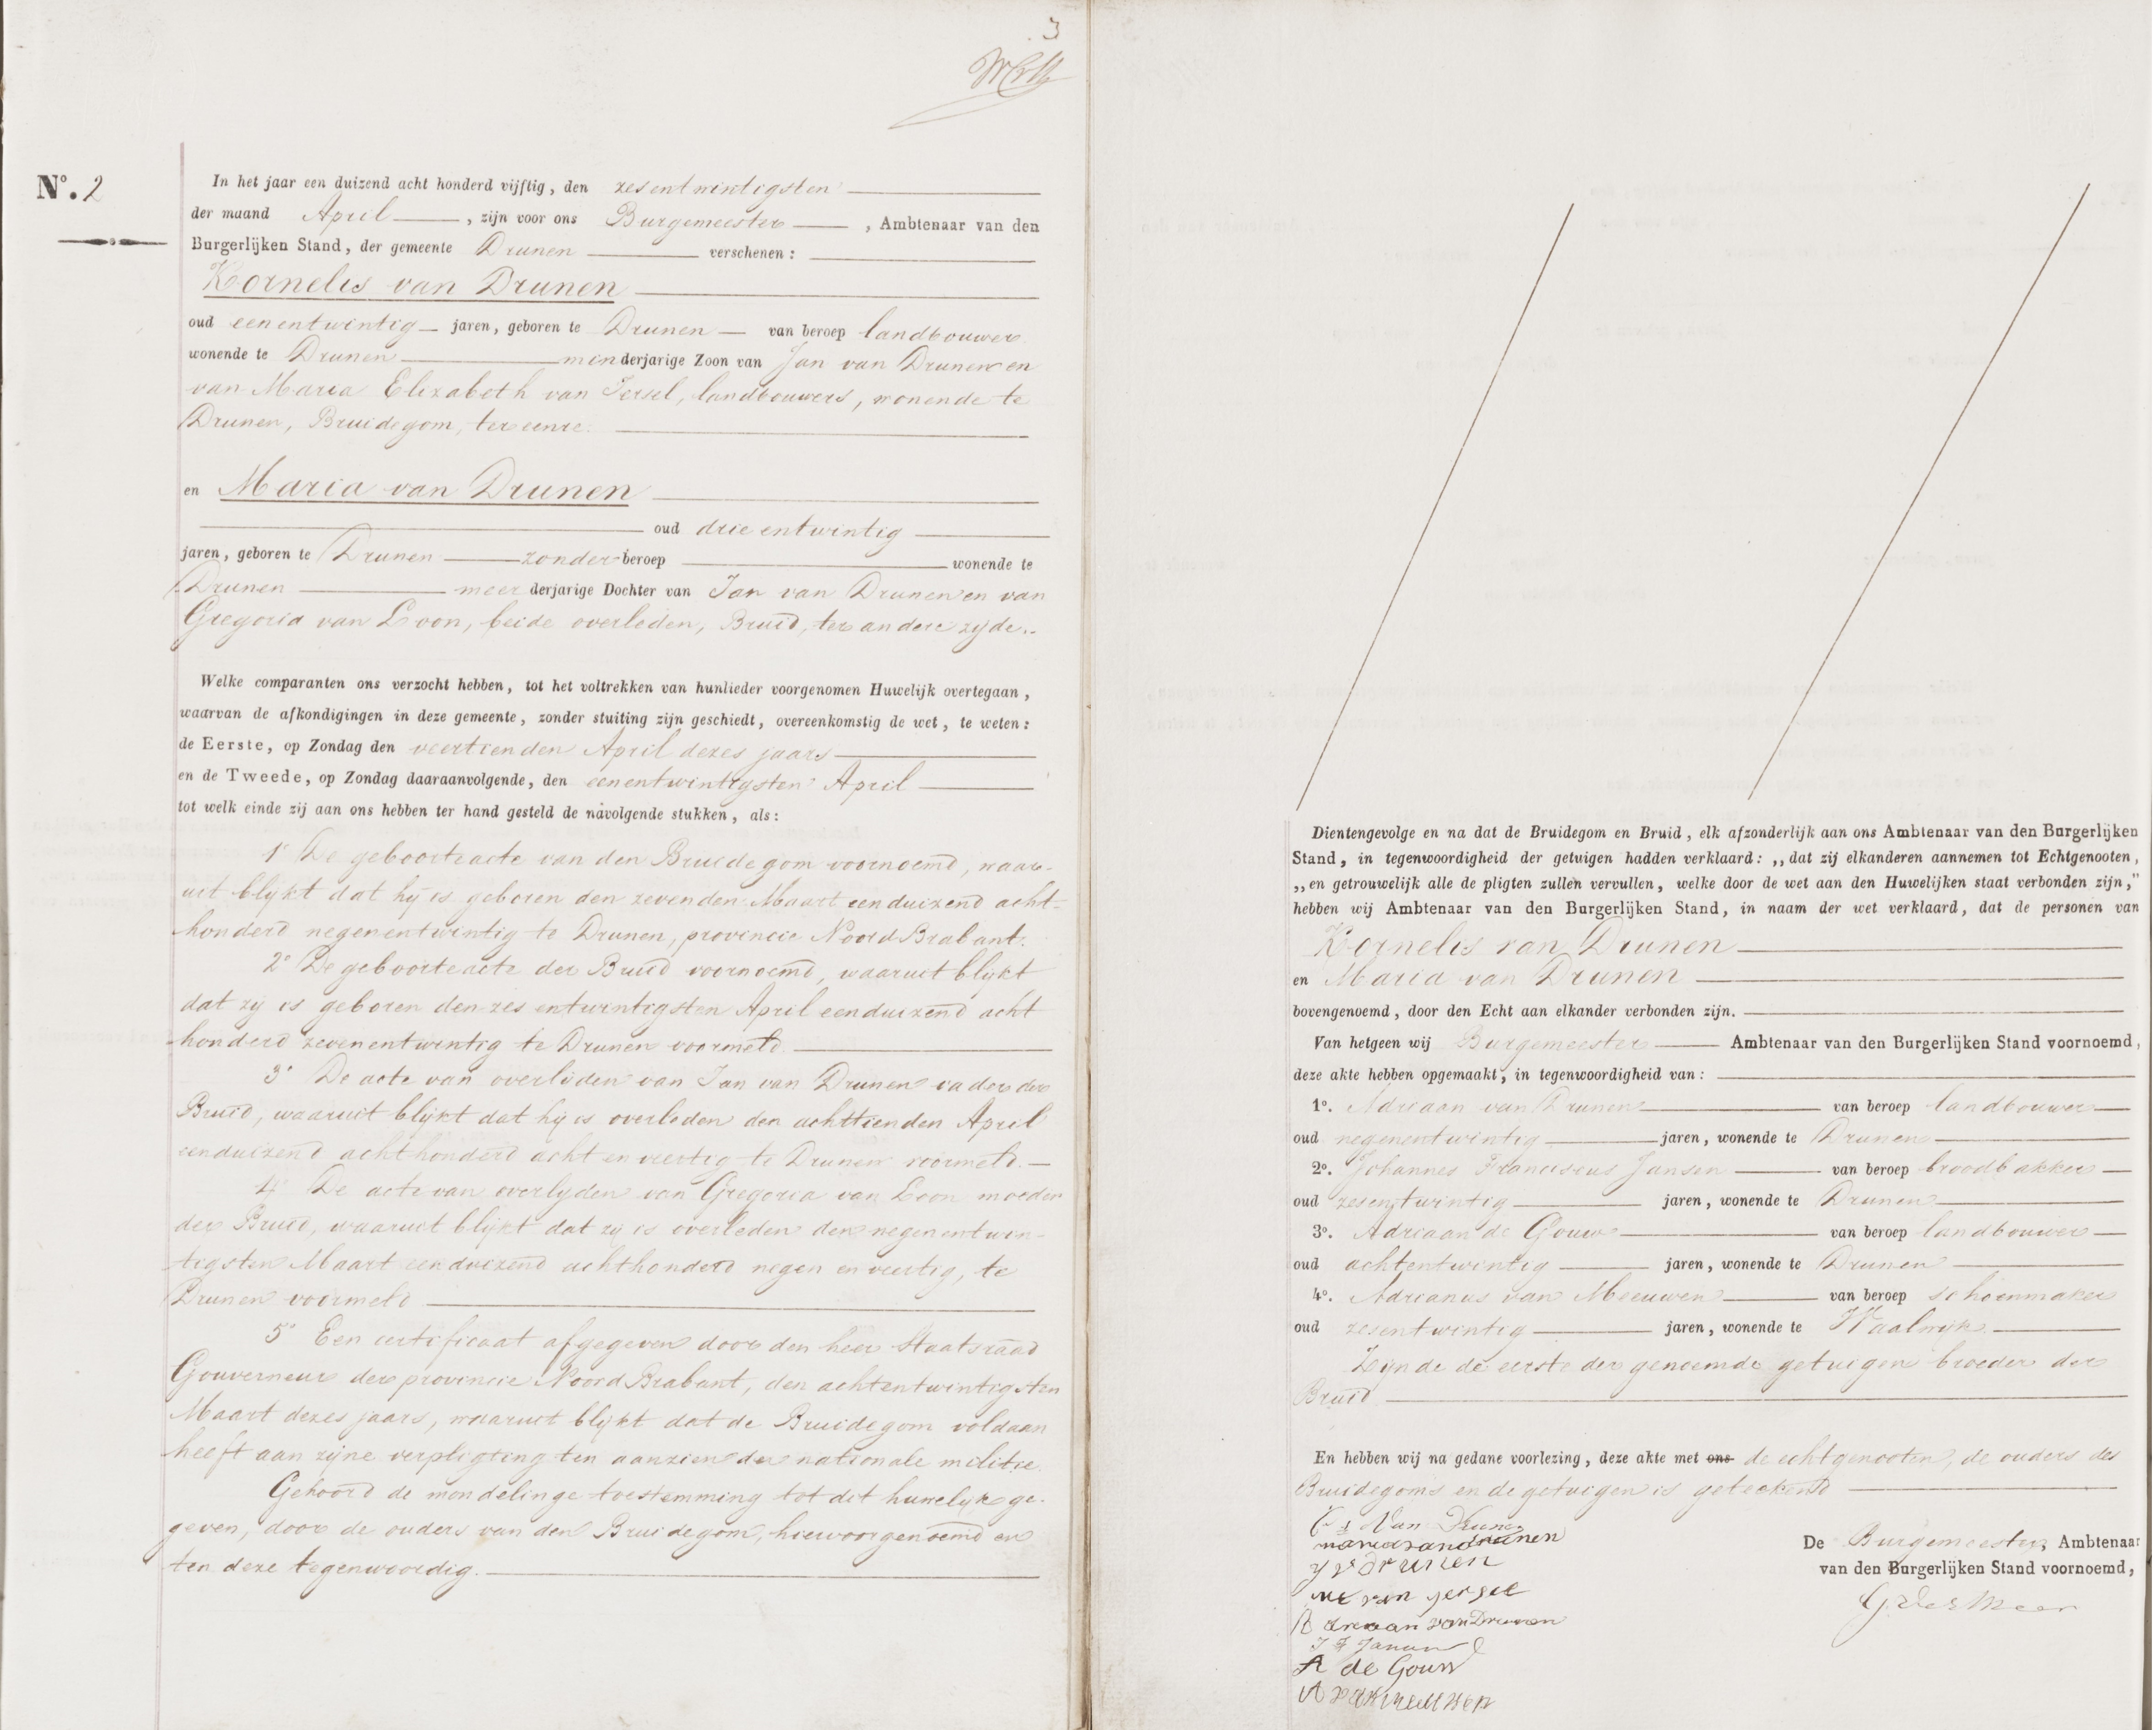 3
N°. 2
In het jaar een duizend acht honderd vijftig, den zesentwintigsten
der maand April, zijn voor ons Burgemeester, Ambtenaar van den
Burgerlijken Stand, der gemeente Drunen verschenen:
Kornelis van Drunen
oud eenentwintig jaren, geboren te Drunen van beroep landbouwer
wonende te Drunen minderjarige Zoon van Jan van Drunen en
van Maria Elizabeth van Iersel, landbouwers, wonende te
Drunen, Bruidegom, ter eenre.
en Maria van Drunen
oud drieentwintig
jaren, geboren te Drunen zonder beroep wonende te
Drunen meerderjarige Dochter van Jan van Drunen en van
Gregoria van Loon, beide overleden, Bruid, ter andere zyde.
Welke comparanten ons verzocht hebben, tot het voltrekken van hunlieder voorgenomen Huwelijk overtegaan,
waarvan de afkondigingen in deze gemeente, zonder stuiting zijn geschiedt, overeenkomstig de wet, te weten:
de Eerste, op Zondag den veertienden April dezes jaars
en de Tweede, op Zondag daaraanvolgende, den eenentwintigsten April
tot welk einde zij aan ons hebben ter hand gesteld de navolgende stukken, als:
1° De geboorteacte van den Bruidegom voornoemd, waar-
uit blykt dat hy is geboren den zevenden Maart eenduizend acht-
honderd negenentwintig te Drunen, provincie Noord Brabant.
2° De geboorteacte der Bruid voornoemd, waaruit blykt
dat zy is geboren den zesentwintigsten April eenduizend acht
honderd zevenentwintig te Drunen voormeld
3° De acte van overlyden van Jan van Drunen vader der
Bruid, waaruit blykt dat hy is overleden den achttienden April
eenduizend achthonderd acht en veertig te Drunen voormeld.
4° De acte van overlyden van Gregoria van Loon moeder
der Bruid, waaruit blykt dat zy is overleden den negenentwin-
tigsten Maart eenduizend achthonderd negen en veertig, te
Drunen voormeld
5° Een certificaat afgegeven door den heer Staatsraad
Gouverneur der provincie Noord Brabant, den achtentwintigsten
Maart dezes jaars, waaruit blykt dat de Bruidegom voldaan
heeft aan zyne verpligting ten aanzien der nationale militie.
Gehoord de mondelinge toestemming tot dit huwelyk ge-
geven, door de ouders van den Bruidegom, hiervoorgenoemd en
ten deze tegenwoordig.
Dientengevolge en na dat de Bruidegom en Bruid, elk afzonderlijk aan ons Ambtenaar van den Burgerlijken
Stand, in tegenwoordigheid der getuigen hadden verklaard: „dat zij elkanderen aannemen tot Echtgenooten,
„en getrouwelijk alle de pligten zullen vervullen, welke door de wet aan den Huwelijken staat verbonden zijn,"
hebben wij Ambtenaar van den Burgerlijken Stand, in naam der wet verklaard, dat de personen van
Kornelis van Drunen
en Maria van Drunen
bovengenoemd, door den Echt aan elkander verbonden zijn.
Van hetgeen wij Burgemeester Ambtenaar van den Burgerlijken Stand voornoemd,
deze akte hebben opgemaakt, in tegenwoordigheid van:
1°. Adriaan van Drunen van beroep landbouwer
oud negenentwintig jaren, wonende te Drunen
2°. Johannes Franciscus Jansen van beroep broodbakker
oud zesentwintig jaren, wonende te Drunen
3°. Adriaan de Gouw van beroep landbouwer
oud achtentwintig jaren, wonende te Drunen
4°. Adrianus van Meeuwen van beroep schoenmaker
oud zesentwintig jaren, wonende te Waalwyk
Zynde de eerste der genoemde getuigen broeder der
Bruid
En hebben wij na gedane voorlezing, deze akte met ons de echtgenooten, de ouders des
Bruidegoms en de getuigen is geteekend
Van Drunen
maria van drunen
J v Drunen
ME van yersel
Adreaan van Drunen
J F Jansen
A de Gouw
A van meeuwen
De Burgemeester, Ambtenaar
van den Burgerlijken Stand voornoemd,